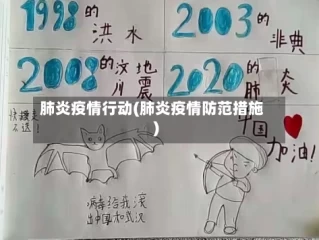 1998的洪水
2003的非典
2008的汶川地震
2020的肺炎
肺炎疫情行动(肺炎疫情防范措施
)
中国加油!
病毒给我滚
出中国和武汉